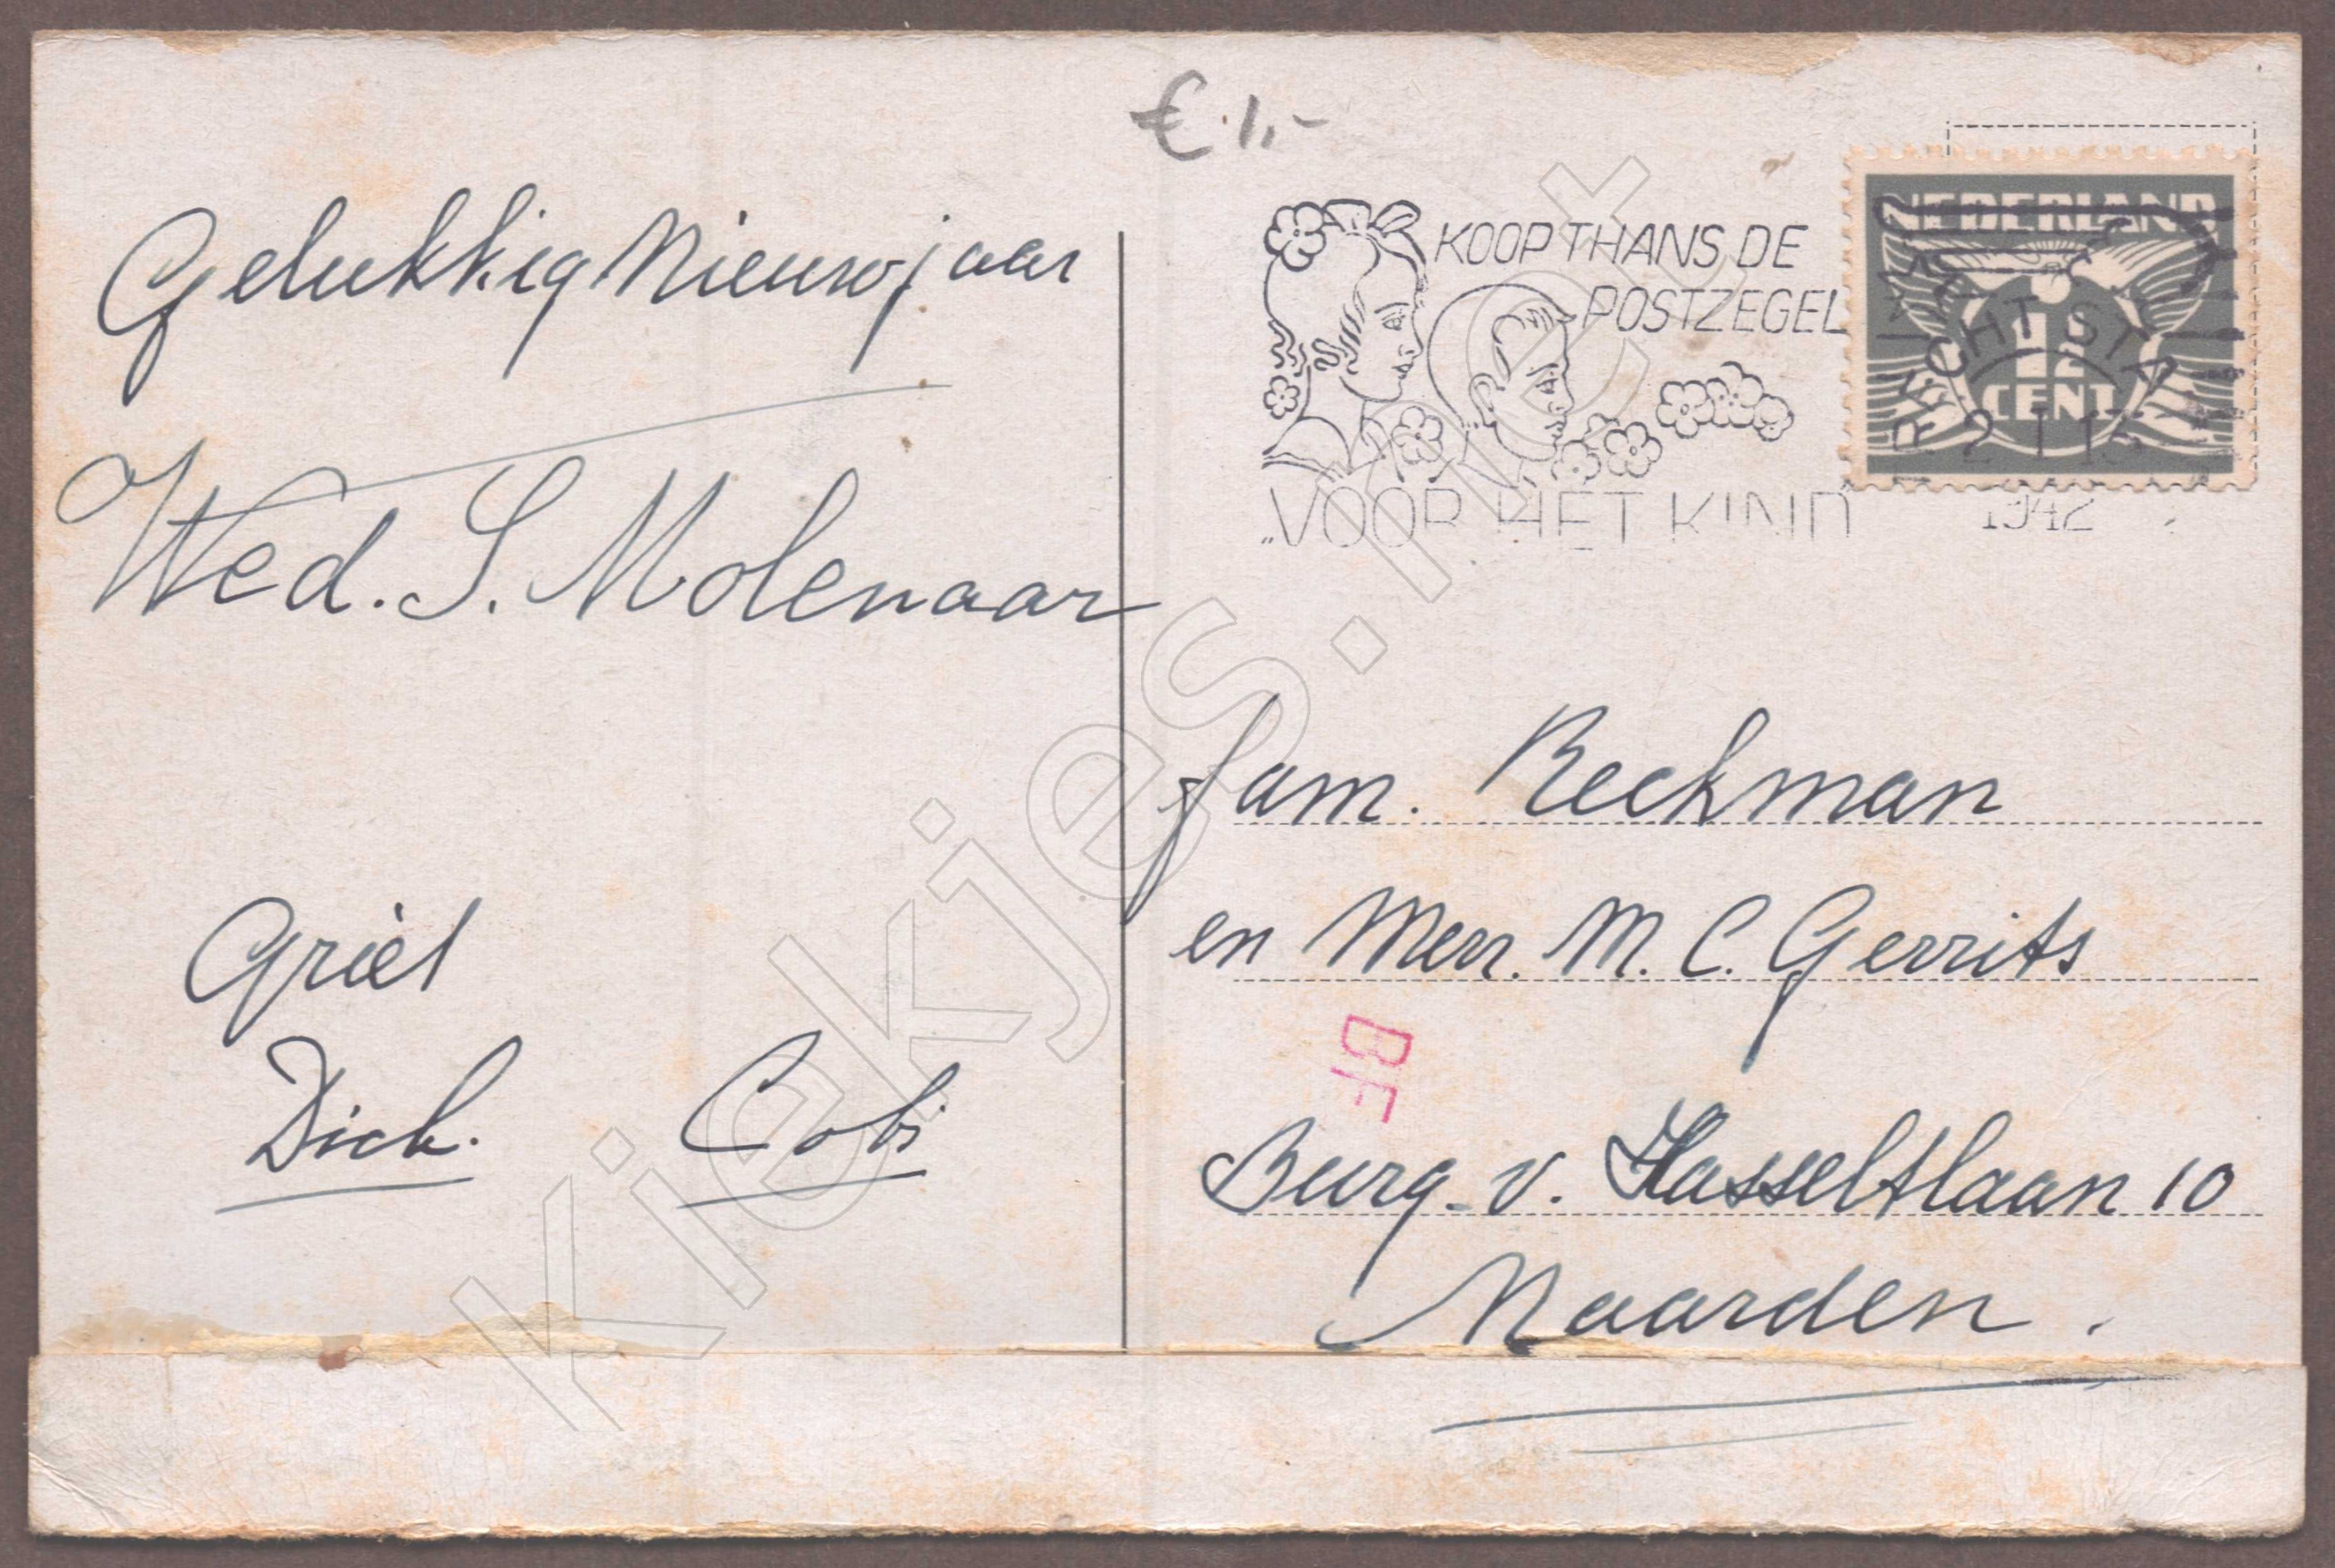 € 1,-
Gelukkig Nieuwjaar
Wed. S. Molenaar
Griet
Dick.
Cobi
KOOP THANS DE
POSTZEGEL
„VOOR HET KIND"
NEDERLAND
1½
CENT
1942
fam. Reekman
en Mevr. M. C. Gerrits
BF
Burg. v. Hasseltlaan 10
Naarden.
Kiekjes.net